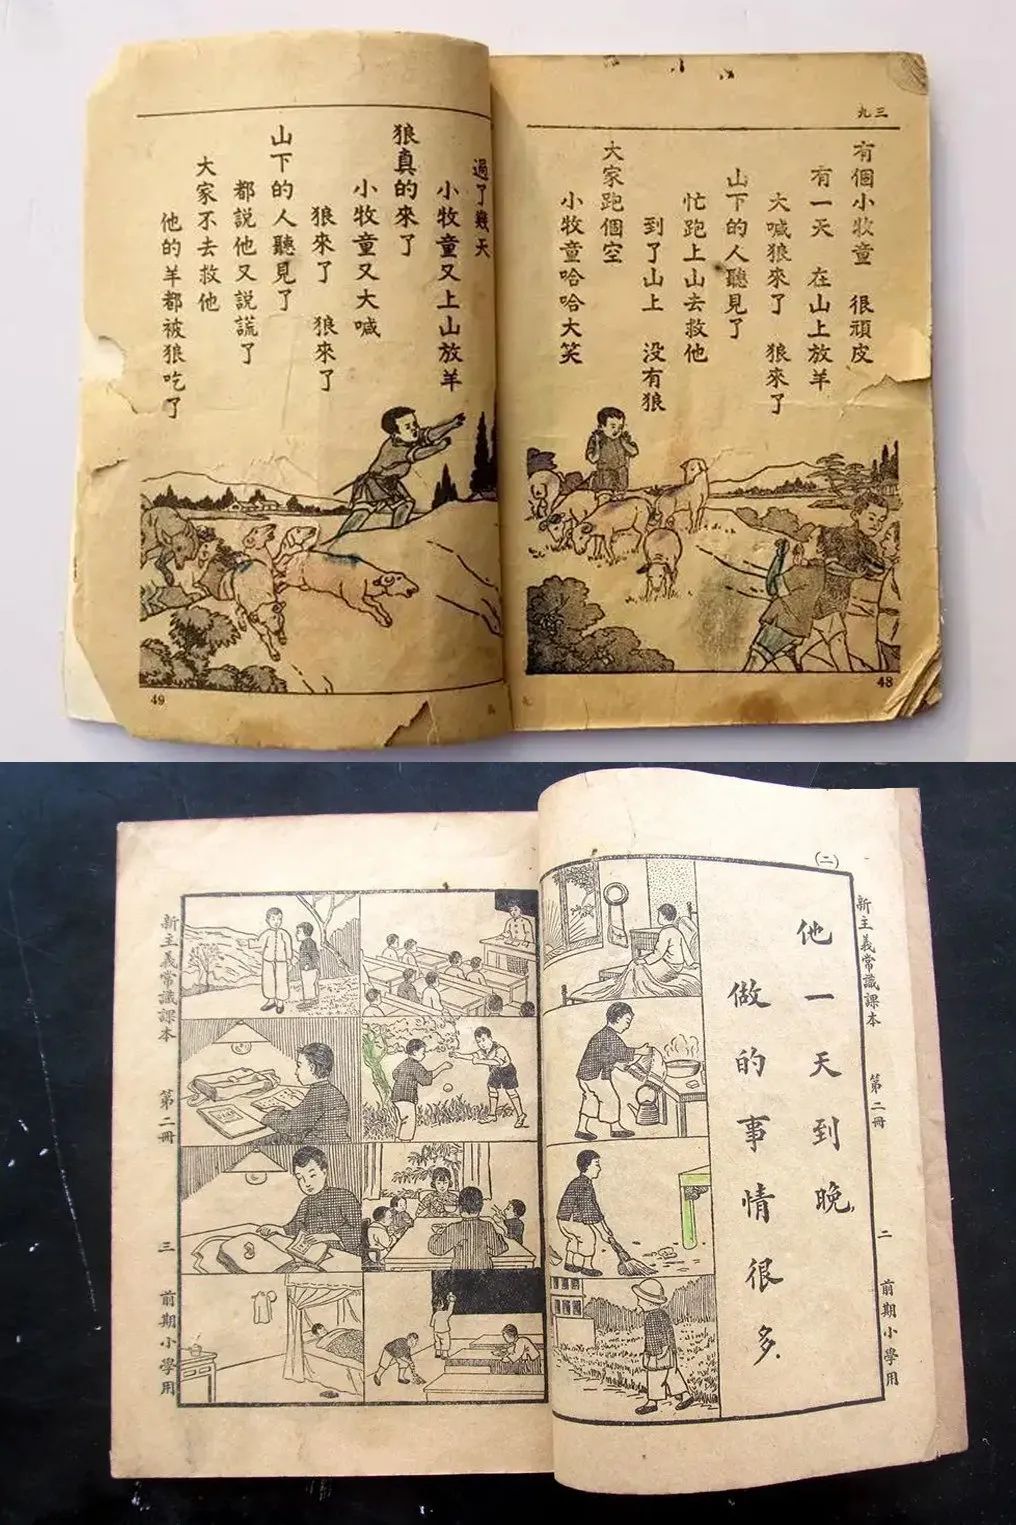 三九
有個小牧童　很頑皮
有一天　在山上放羊
大喊狼來了　狼來了
山下的人聽見了
忙跑上山去救他
到了山上　没有狼
大家跑個空
小牧童哈哈大笑
48
過了幾天
小牧童又上山放羊
狼真的來了
小牧童又大喊
狼來了　狼來了
山下的人聽見了
都説他又説謊了
大家不去救他
他的羊都被狼吃了
49
新主義常識課本　第二冊　二　前期小學用
(二)
他一天到晚
做的事情很多
新主義常識課本　第二冊　三　前期小學用